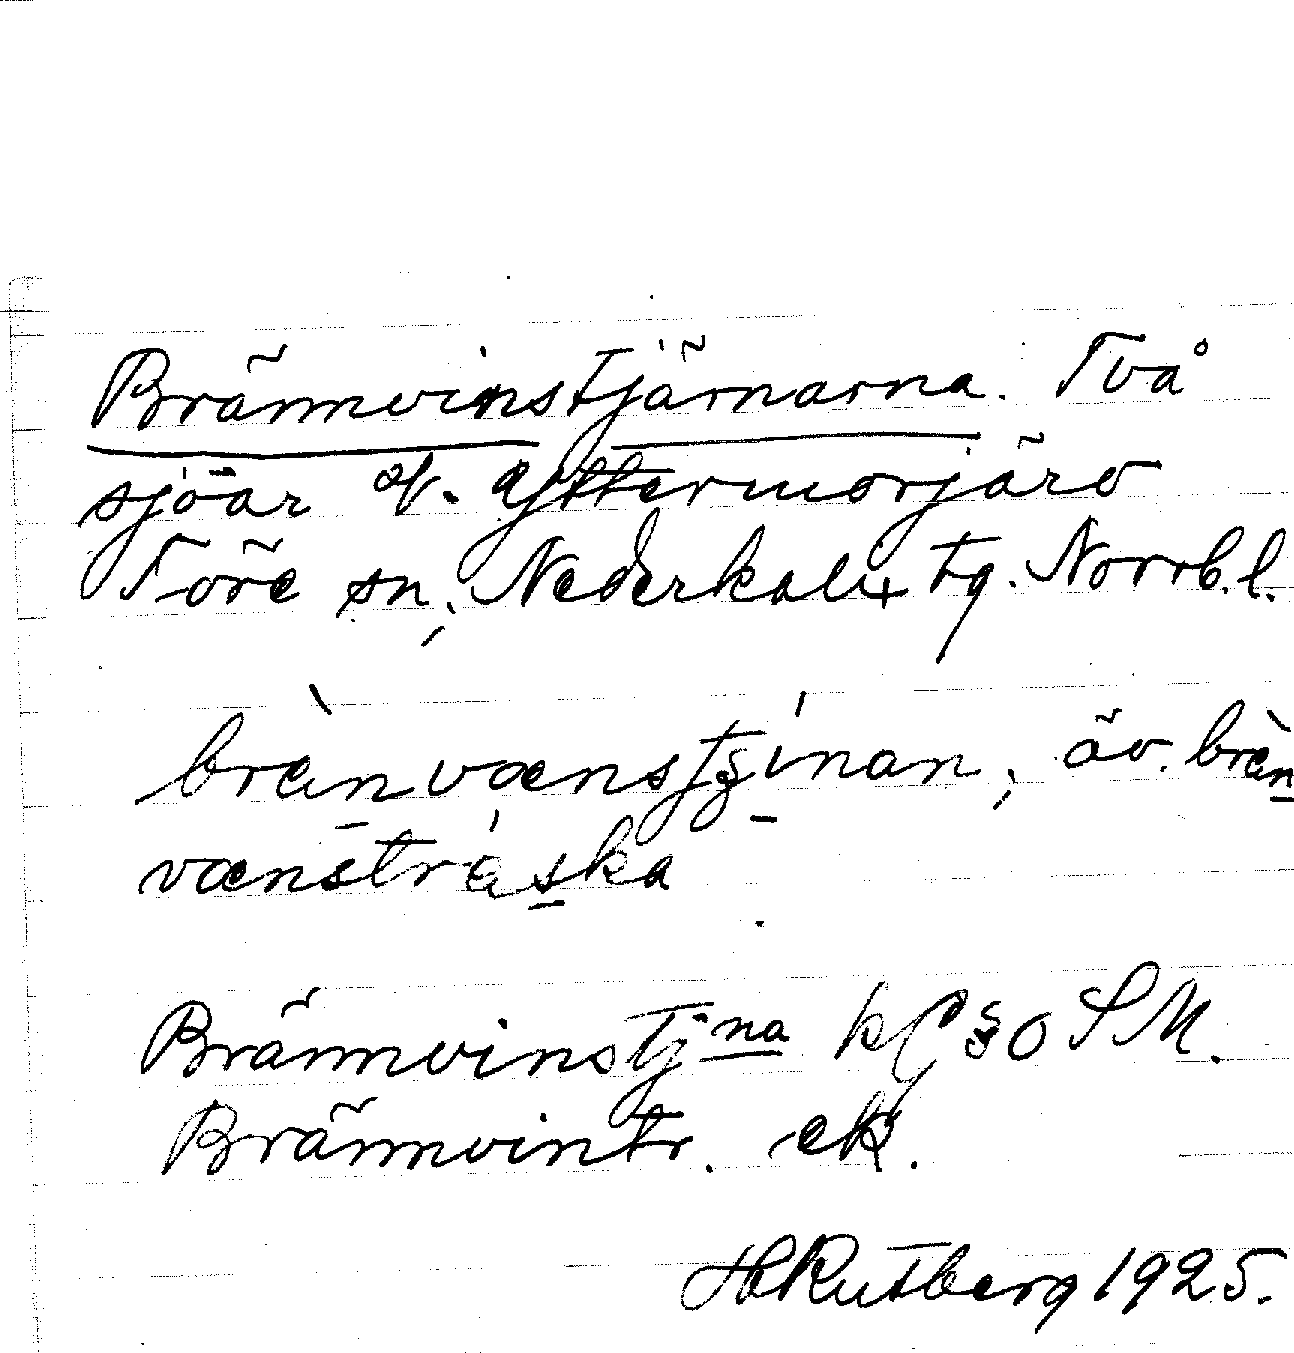 Brännvinstjärnarna. Två
sjöar v. Yttermorjärv
Töre sn, Nederkalix tg. Norrb.l.
brànvænstʒínan, äv. bràn
vænstráska
Brännvinstj:na SM.
Brännvintr. ek.
H Rutberg 1925.